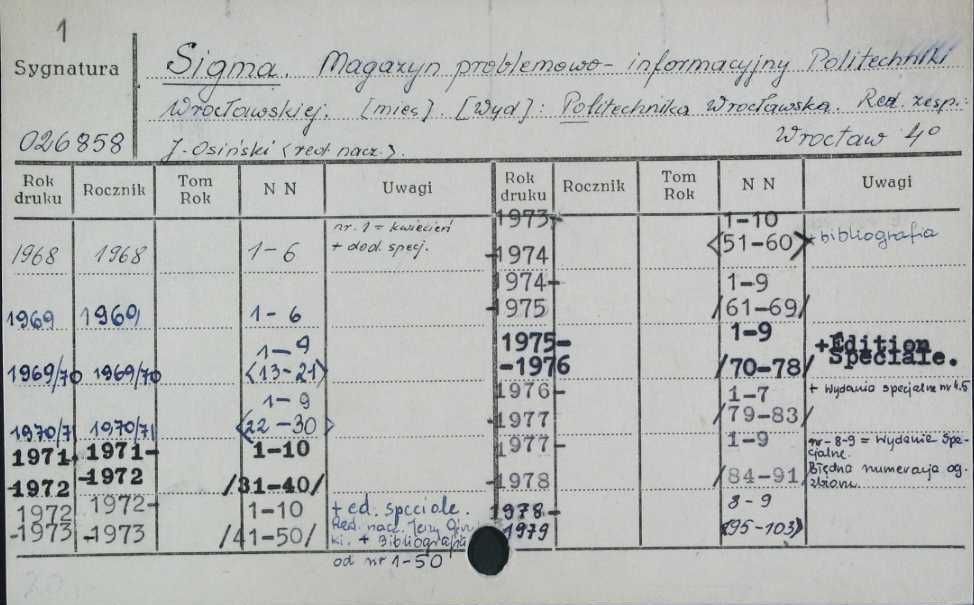 1
Sygnatura
Sigma. Magazyn problemowo-informacyjny Politechniki
Wrocławskiej. [mies]. [Wyd]: Politechnika Wrocławska. Red. zesp:
026858
J. Osiński (red. nacz.).
Wrocław 4°
Rok druku Rocznik Tom Rok N N Uwagi
1968 1968 1-6 nr. 1 = kwiecień + dod. specj.
1969 1969 1-6
1969/70 1969/70 1-9 <13-21>
1970/71 1970/71 1-9 <22-30>
1971-1972 1971-1972 1-10 /31-40/
1972-1973 1972-1973 1-10 /41-50/ + ed. speciale.
Red. nacz. Jerzy
ki. + Bibliografia
od nr 1-50
Rok druku Rocznik Tom Rok N N Uwagi
1973-1974 1-10 <51-60> + bibliografia
1974-1975 1-9 /61-69/
1975-1976 1-9 /70-78/ +Edition Speciale.
1976-1977 1-7 /79-83/ + Wydania specjalne nr 4.5
1977-1978 1-9 /84-91/ nr-8-9 = Wydanie Spe-
cjalne.
Błędna numeracja og.
zbioru.
1978-1979 8-9 (95-103)